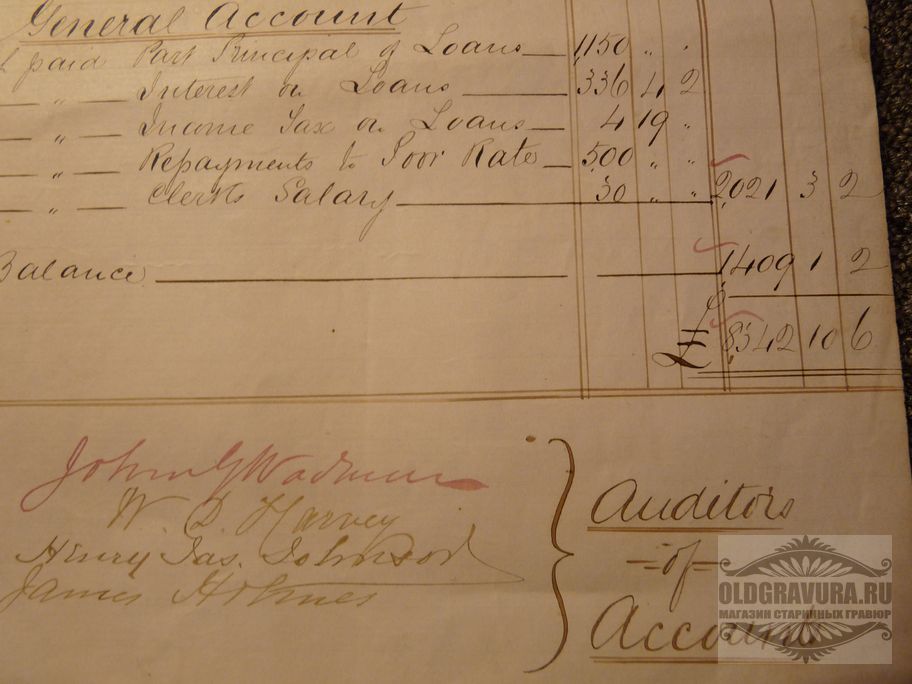 General Account
paid Part Principal of Loans — 1,150 " "
— " — Interest on Loans — 336 4 2
— " — Income Tax on Loans — 4 19 "
— " — Repayments to Poor Rates — 500 " "
— " — Clerks Salary — 30 " " 2,021 3 2
Balance — 1409 1 2
£ 8,342 10 6
John G
W. D. Harvey
Henry Jas. Johnson
James Holmes
Auditors
of
Account
OLDGRAVURA.RU
МАГАЗИН СТАРИННЫХ ГРАВЮР